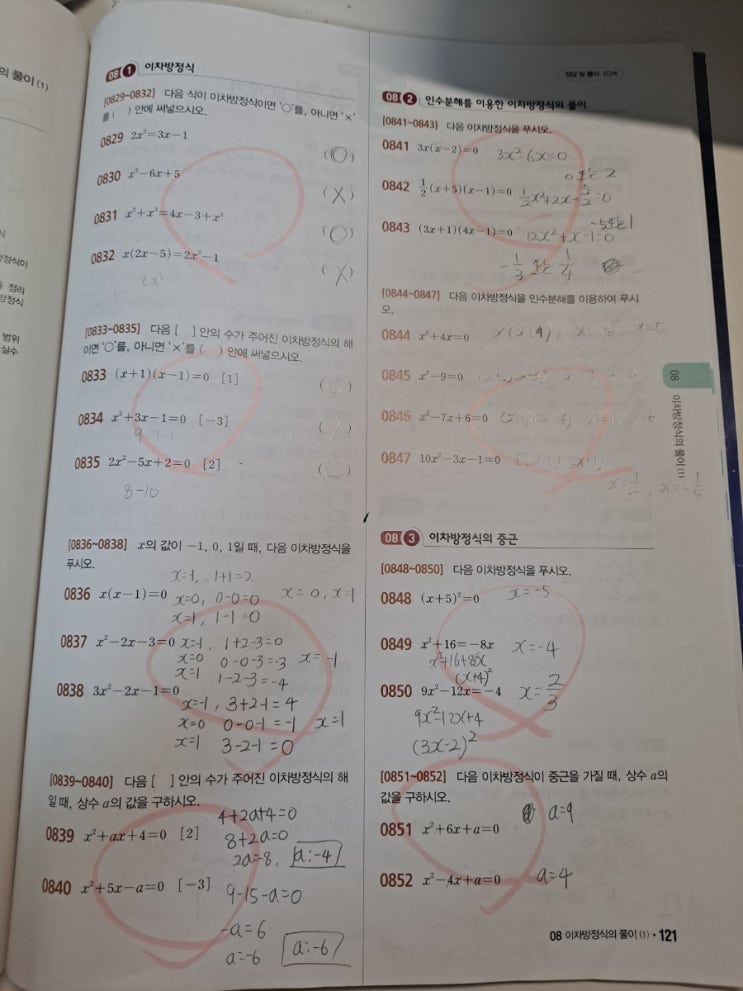 의 풀이 (1)
08 1 이차방정식
[0829~0832] 다음 식이 이차방정식이면 '○'를, 아니면 '×'
를 ( ) 안에 써넣으시오.
0829 2x²=3x-1
(○)
0830 x²-6x+5
(X)
0831 x²+x³=4x-3+x³
(○)
0832 x(2x-5)=2x²-1
(X)
[0833~0835] 다음 [ ] 안의 수가 주어진 이차방정식의 해
이면 '○'를, 아니면 '×'를 ( ) 안에 써넣으시오.
0833 (x+1)(x-1)=0 [1]
0834 x²+3x-1=0 [-3]
0835 2x²-5x+2=0 [2]
8-10
[0836~0838] x의 값이 -1, 0, 1일 때, 다음 이차방정식을
푸시오.
x=-1, 1+1=2
0836 x(x-1)=0 x=0, 0-0=0 x=0, x=1
x=1, 1-1=0
0837 x²-2x-3=0 x=-1, 1+2-3=0
x=0 0-0-3=-3 x=-1
x=1 1-2-3=-4
0838 3x²-2x-1=0
x=-1, 3+2-1=4
x=0 0-0-1=-1 x=1
x=1 3-2-1=0
[0839~0840] 다음 [ ] 안의 수가 주어진 이차방정식의 해
일 때, 상수 a의 값을 구하시오.
4+2a+4=0
0839 x²+ax+4=0 [2] 8+2a=0
2a=-8, a:-4
0840 x²+5x-a=0 [-3] 9-15-a=0
-a=6
a=-6 a:-6
정답 및 풀이 63쪽
08 2 인수분해를 이용한 이차방정식의 풀이
[0841~0843] 다음 이차방정식을 푸시오.
0841 3x(x-2)=0 3x²-6x=0
0 또는 2
0842 1/2(x+5)(x-1)=0 1/2x²+2x-5/2=0
-5또는1
0843 (3x+1)(4x-1)=0 12x²+x-1=0
-1/3 또는 1/4
[0844~0847] 다음 이차방정식을 인수분해를 이용하여 푸시
오.
0844 x²+4x=0
0845 x²-9=0
0846 x²-7x+6=0
0847 10x²-3x-1=0
x=1/2, x=-1/5
08 3 이차방정식의 중근
[0848~0850] 다음 이차방정식을 푸시오.
0848 (x+5)²=0 x=-5
0849 x²+16=-8x x=-4
x²+16+8x
(x+4)²
0850 9x²-12x=-4 x=2/3
9x²-12x+4
(3x-2)²
[0851~0852] 다음 이차방정식이 중근을 가질 때, 상수 a의
값을 구하시오.
0851 x²+6x+a=0 a=9
0852 x²-4x+a=0 a=4
08 이차방정식의 풀이 (1)
08 이차방정식의 풀이 (1) • 121